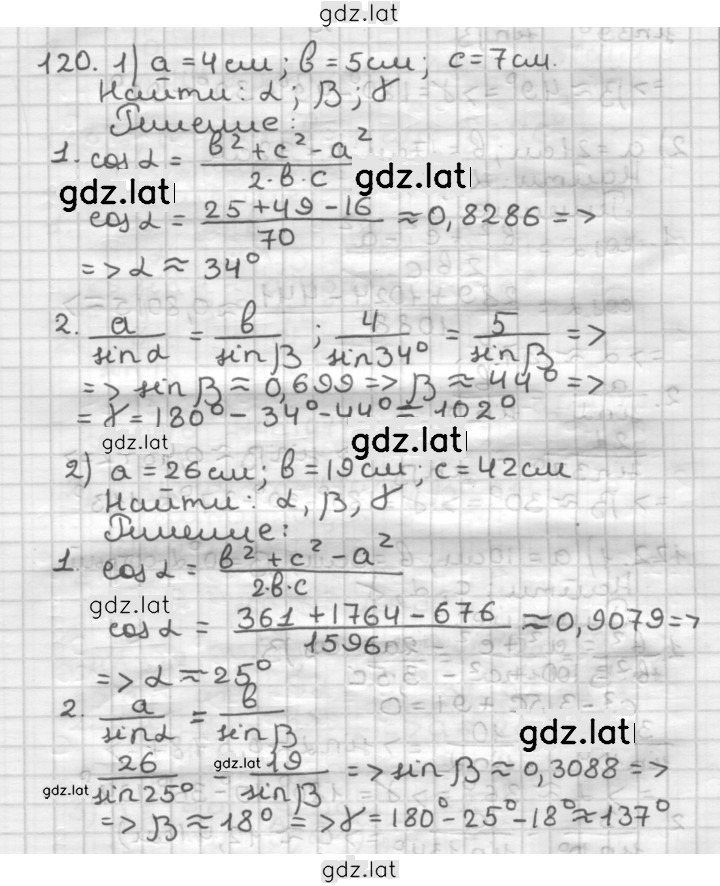 gdz.lat
120. 1) a = 4 см; b = 5 см; c = 7 см.
Найти: α; β; γ
Решение:
1. cos α = (b² + c² - a²) / (2·b·c)
gdz.lat gdz.lat
cos α = (25 + 49 - 16) / 70 ≈ 0,8286 =>
=> α ≈ 34°
2. a / sin α = b / sin β ; 4 / sin 34° = 5 / sin β =>
=> sin β ≈ 0,699 => β ≈ 44° =>
= γ = 180° - 34° - 44° = 102°
gdz.lat gdz.lat
2) a = 26 см; b = 19 см; c = 42 см
Найти: α, β, γ
Решение:
1. cos α = (b² + c² - a²) / (2·b·c)
gdz.lat
cos α = (361 + 1764 - 676) / 1596 ≈ 0,9079 =>
=> α ≈ 25°
2. a / sin α = b / sin β
gdz.lat
26 / sin 25° = 19 / sin β => sin β ≈ 0,3088 =>
gdz.lat gdz.lat
=> β ≈ 18° => γ = 180° - 25° - 18° ≈ 137°
gdz.lat